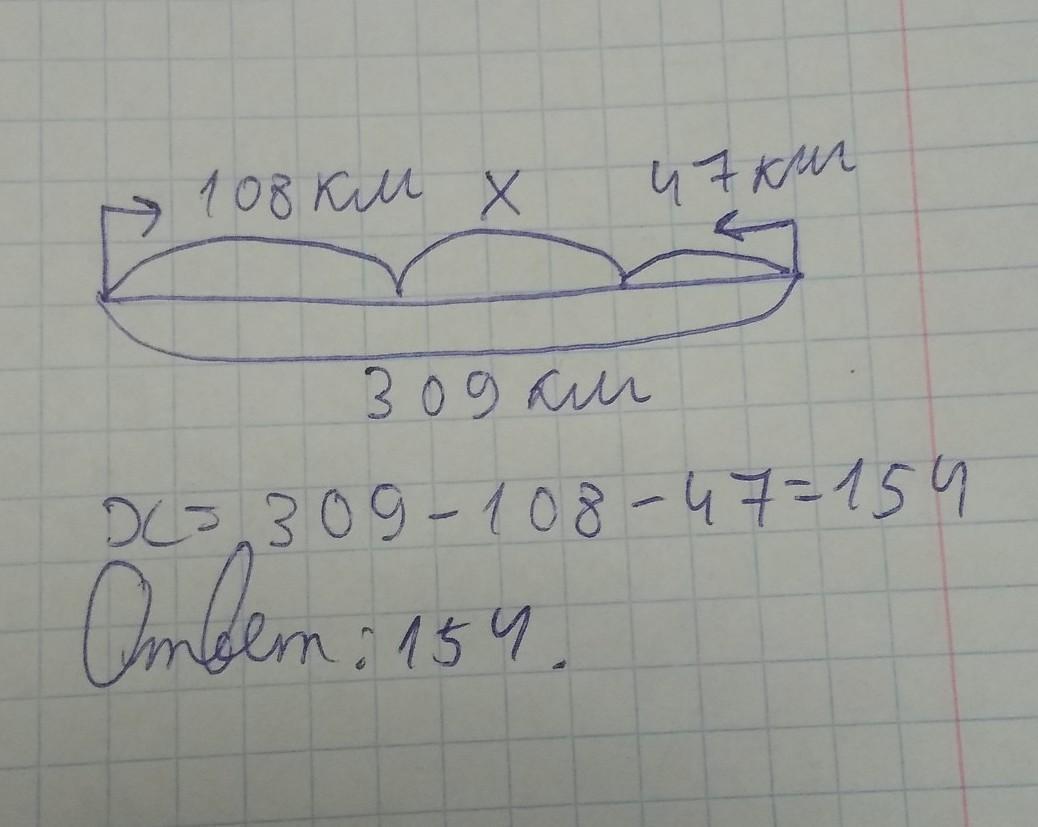 108 км x 47 км
309 км
x = 309 - 108 - 47 = 154
Ответ: 154.